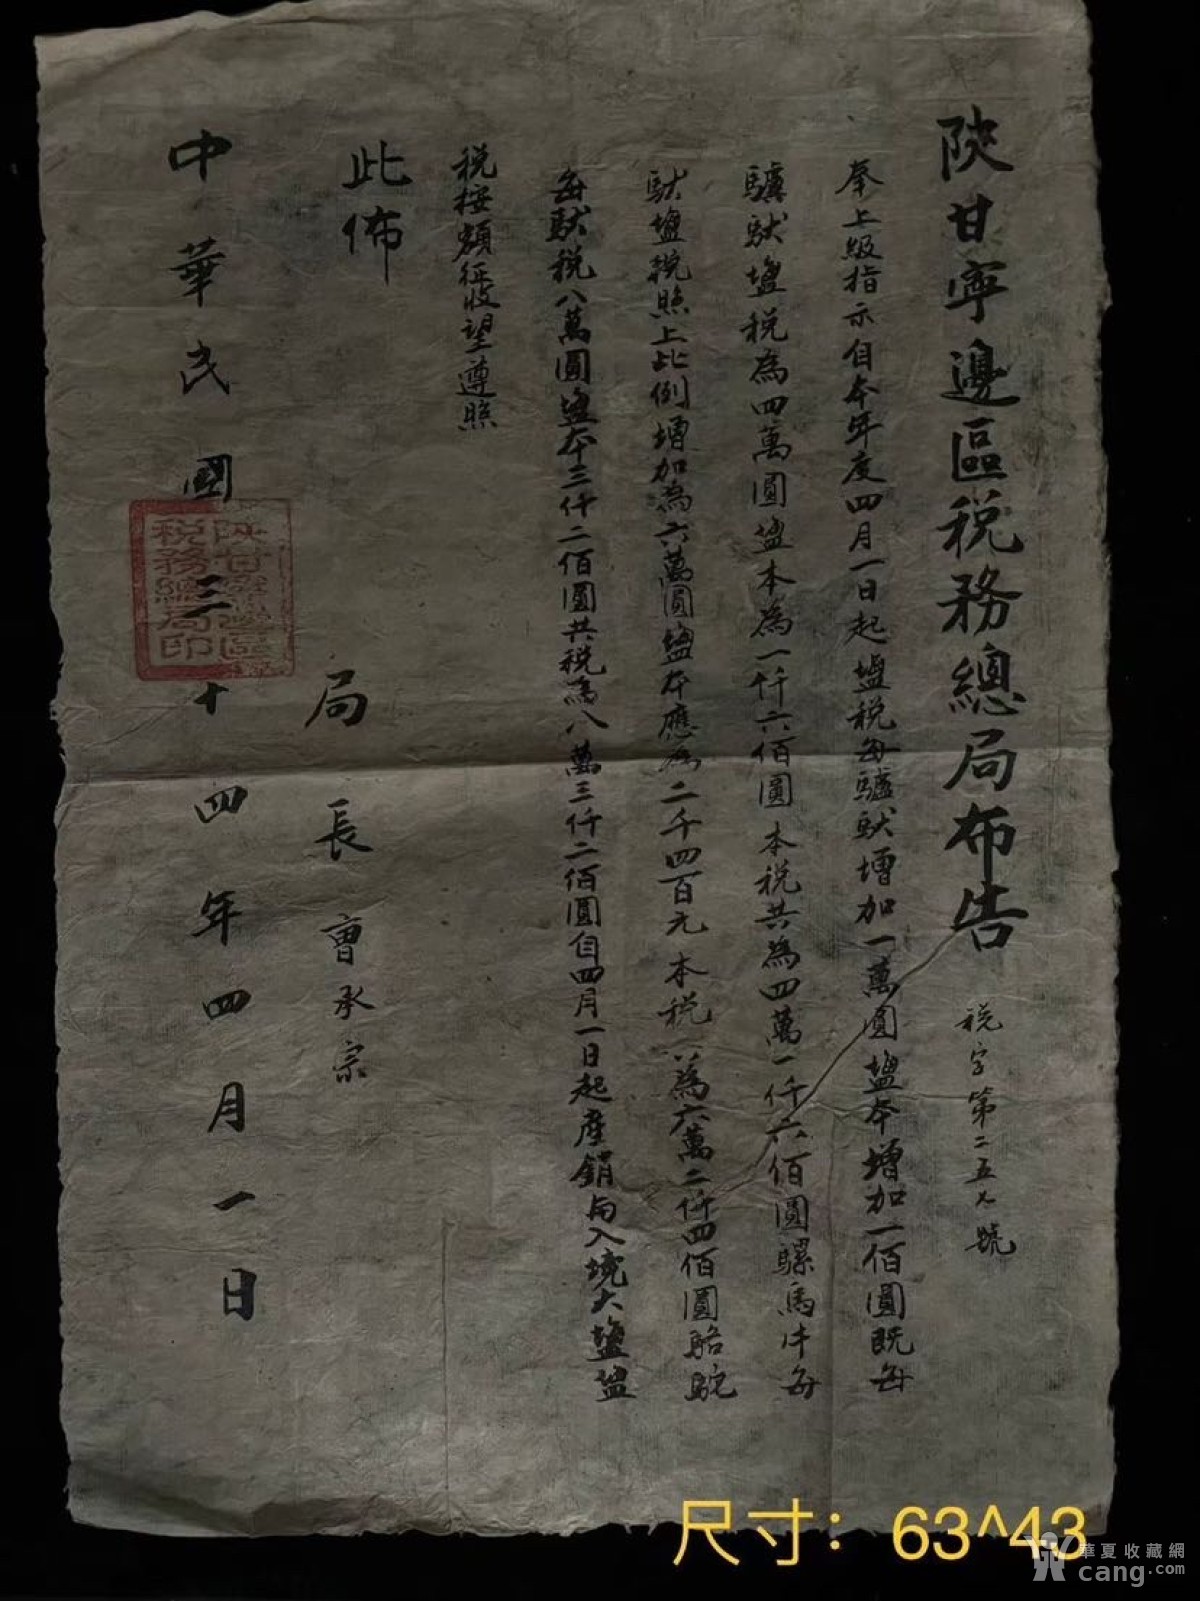 陝甘寧邊區税務總局布告
税字第二五九號
奉上級指示自本年度四月一日起塩税每驢馱增加一萬圓塩本增加一佰圓既每
驢馱塩税為四萬圓塩本為一仟六佰圓本税共為四萬一仟六佰圓騾馬牛每
馱塩税照上比例增加為六萬圓塩本應為二千四百元本税 為六萬二仟四佰圓駱駝
每馱税八萬圓塩本三仟二佰圓共税為八萬三仟二佰圓自四月一日起產銷与入境大鹽塩
税按額征收望遵照
此佈
局長 曹承宗
中華民國三十四年四月一日
陝甘寧邊區
税務總局印
尺寸：63^43
華夏收藏網
cang.com